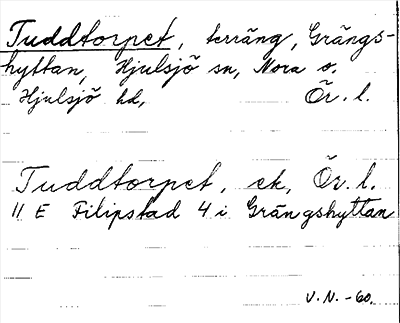 Tuddtorpet, terräng, Grängs-
hyttan, Hjulsjö sn, Nora o.
Hjulsjö hd, Ör. l.
Tuddtorpet, ek, Ör. l.
11 E Filipstad 4 i Grängshyttan
V. N. -60.